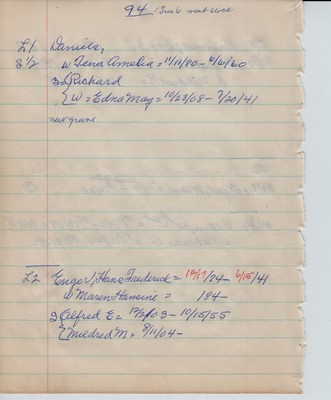 94 = Sub next block
L1 Daniels,
S 1/2 w Tena Amelia = 11/11/80 - 6/6/60
3 { Richard
{ W = Edna May = 10/23/08 - 7/20/41
new grave
L2 Enger, Hans Frederick = 10/17/74 - 6/15/41
w Maren Hansine = 184 -
3 { Alfred E = 12/2/03 - 10/15/55
{ Mildred M. = 8/11/04 -